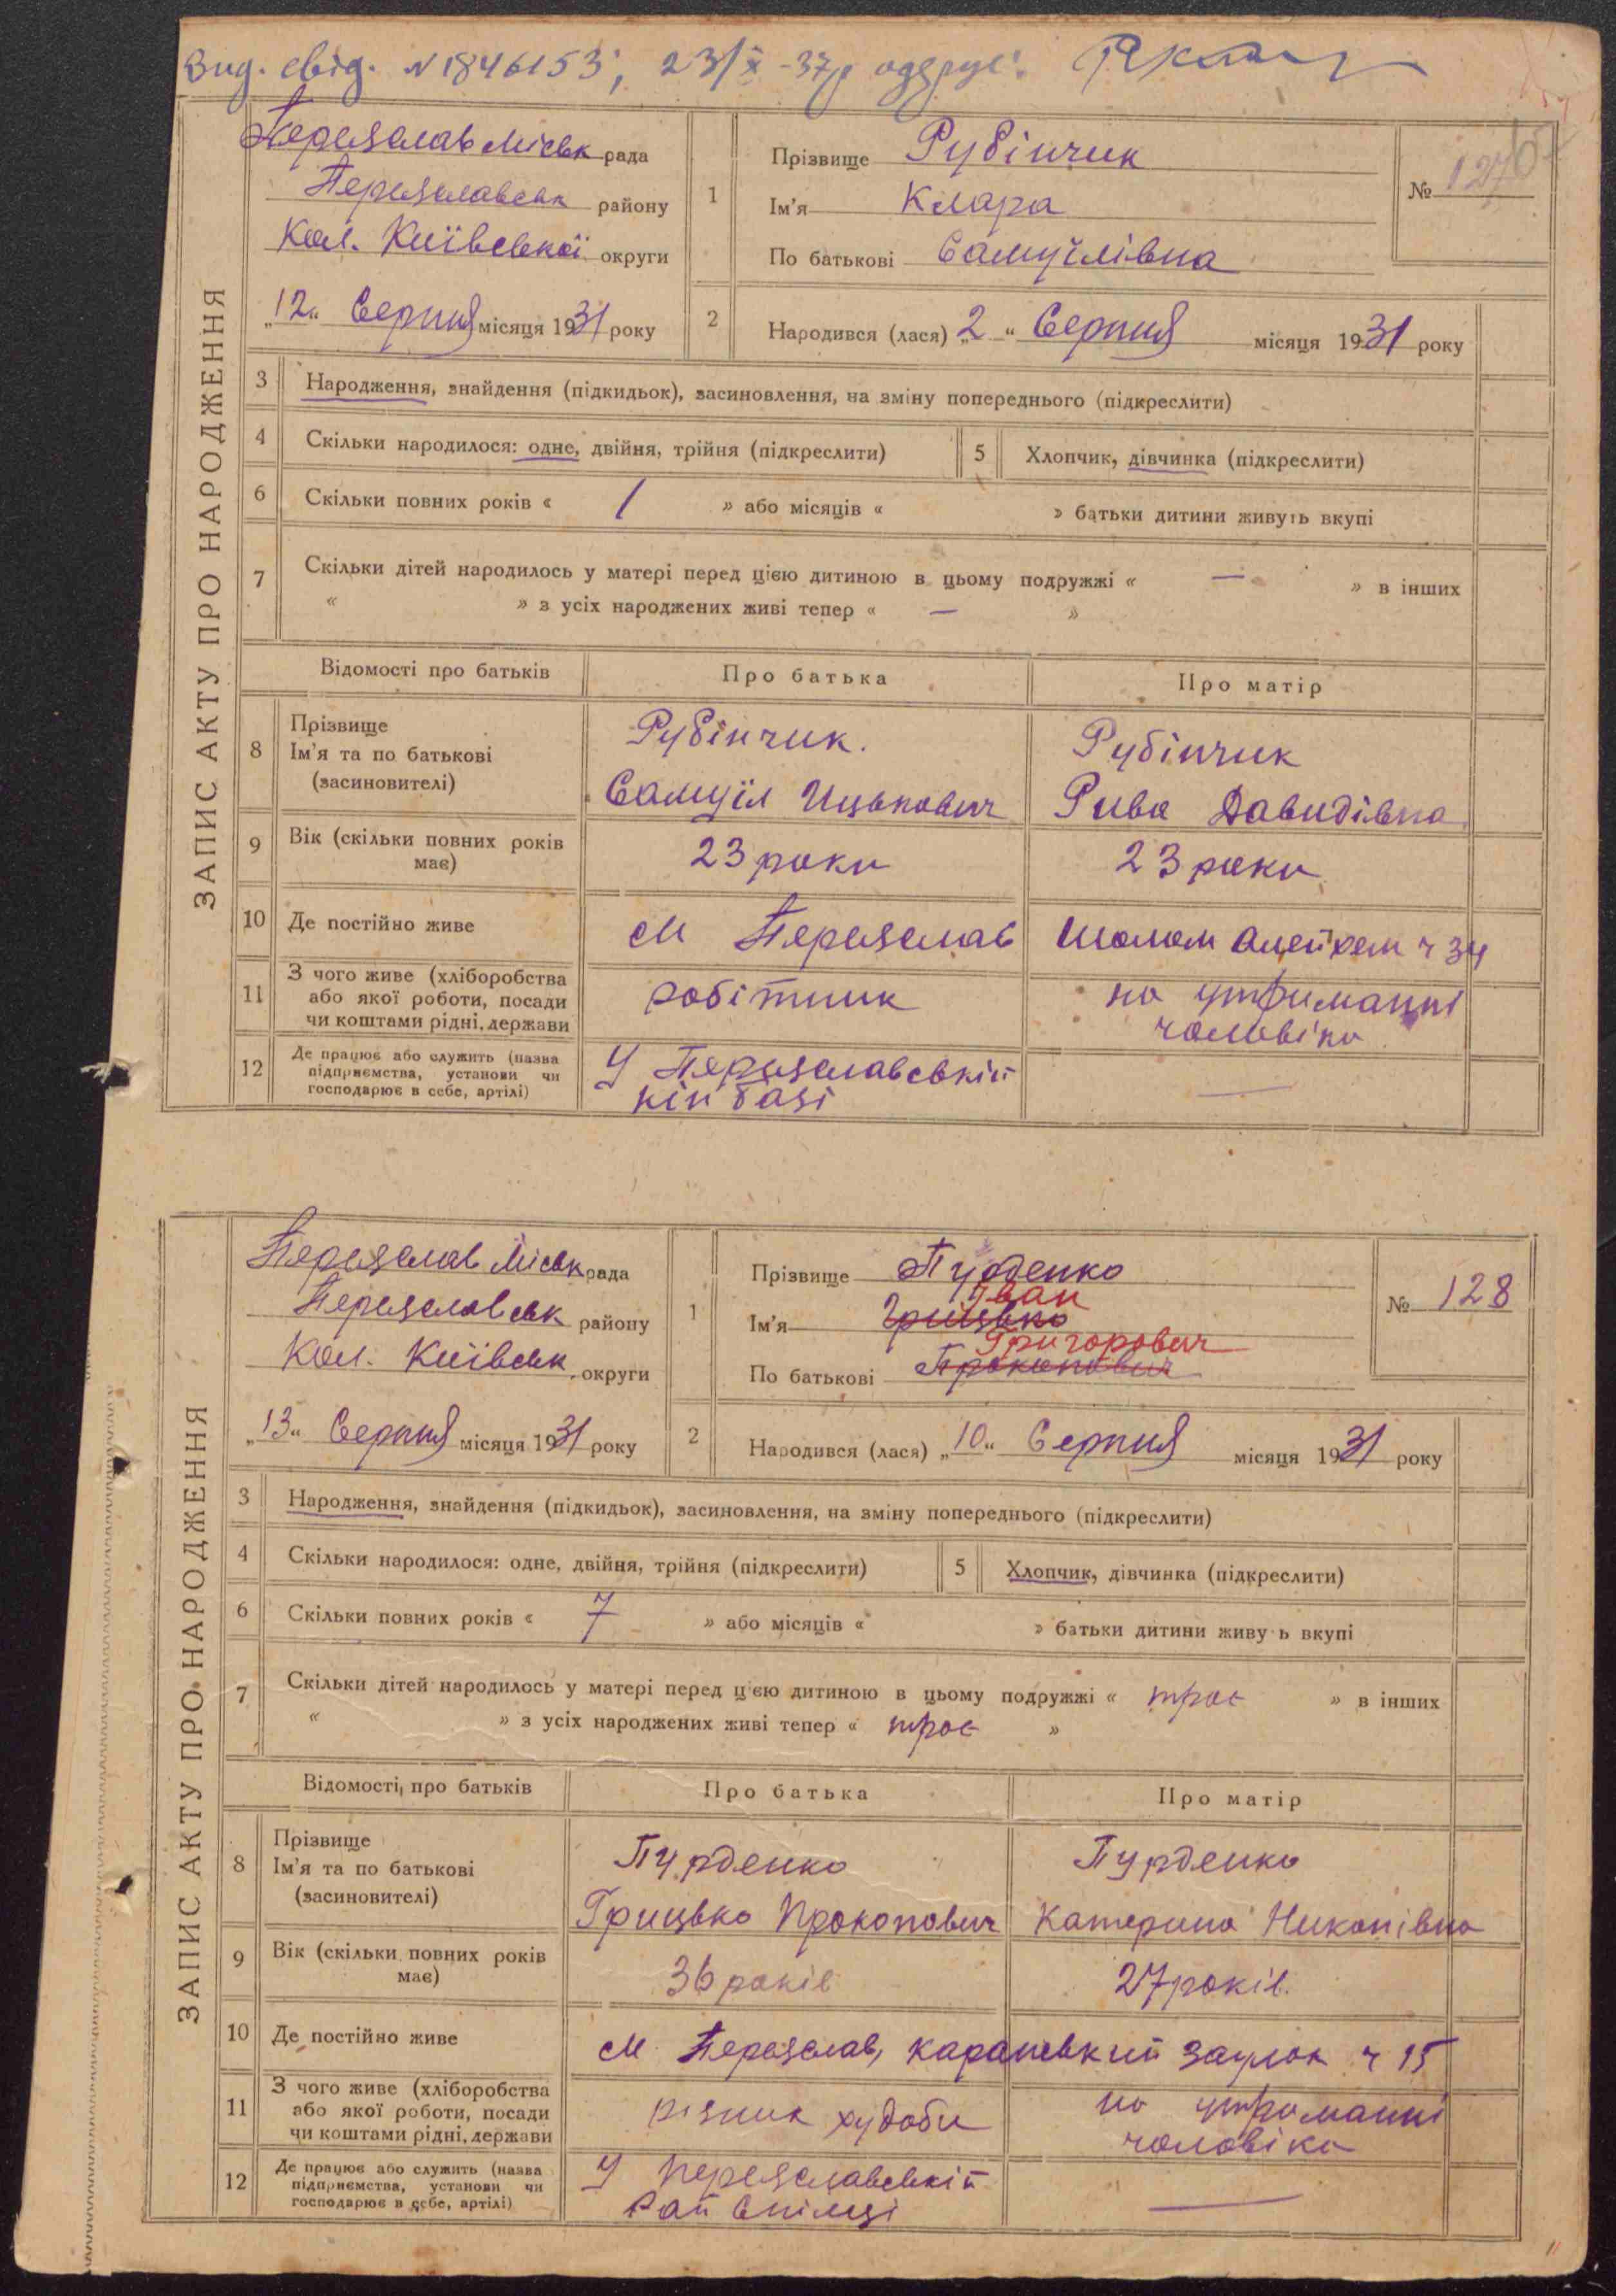 Вид. свід. №1846153; 23/X-37р одержує:
ЗАПИС АКТУ ПРО НАРОДЖЕННЯ
Переяслав Міськ рада
Переяславськ району
Кол. Київської округи
„12“ Серпня місяця 1931 року
1
Прізвище Рубінчик
Ім'я Клара
По батькові Самуїлівна
№ 127
2
Народився (лася) „2“ Серпня місяця 1931 року
3 Народження, знайдення (підкидьок), засиновлення, на зміну попереднього (підкреслити)
4 Скільки народилося: одне, двійня, трійня (підкреслити) 5 Хлопчик, дівчинка (підкреслити)
6 Скільки повних років « 1 » або місяців « » батьки дитини живуть вкупі
7 Скільки дітей народилось у матері перед цією дитиною в цьому подружжі « — » в інших
« » з усіх народжених живі тепер « — »
Відомості про батьків Про батька Про матір
8 Прізвище
Ім'я та по батькові
(засиновителі)
Рубінчик.
Самуїл Ицькович
Рубінчик
Рива Давидівна
9 Вік (скільки повних років
має)
23 роки
23 роки
10 Де постійно живе м Переяслав Шолом Алейхем ч 34
11 З чого живе (хліборобства
або якої роботи, посади
чи коштами рідні, держави
робітник
на утриманні
чоловіка
12 Де працює або служить (назва
підприємства, установи чи
господарює в себе, артілі)
У Переяславській
кін базі
—
ЗАПИС АКТУ ПРО НАРОДЖЕННЯ
Переяслав Міськ рада
Переяславськ району
Кол. Київськ. округи
„13“ Серпня місяця 1931 року
1
Прізвище Пурденко
Іван
Ім'я Грицько
Григорович
По батькові Прокопович
№ 128
2
Народився (лася) „10“ Серпня місяця 1931 року
3 Народження, знайдення (підкидьок), засиновлення, на зміну попереднього (підкреслити)
4 Скільки народилося: одне, двійня, трійня (підкреслити) 5 Хлопчик, дівчинка (підкреслити)
6 Скільки повних років « 7 » або місяців « » батьки дитини живу ь вкупі
7 Скільки дітей народилось у матері перед цією дитиною в цьому подружжі « троє » в інших
« » з усіх народжених живі тепер « троє »
Відомості про батьків Про батька Про матір
8 Прізвище
Ім'я та по батькові
(засиновителі)
Пурденко
Грицько Прокопович
Пурденко
Катерина Никонівна
9 Вік (скільки повних років
має)
36 років
27 років.
10 Де постійно живе м Переяслав, заулок ч 15
11 З чого живе (хліборобства
або якої роботи, посади
чи коштами рідні, держави
різник худоби
на утриманні
чоловіка
12 Де працює або служить (назва
підприємства, установи чи
господарює в себе, артілі)
У Переяславській
Рай Спілці
—